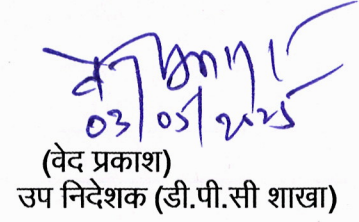 03/05/2025
(वेद प्रकाश)
उप निदेशक (डी.पी.सी शाखा)